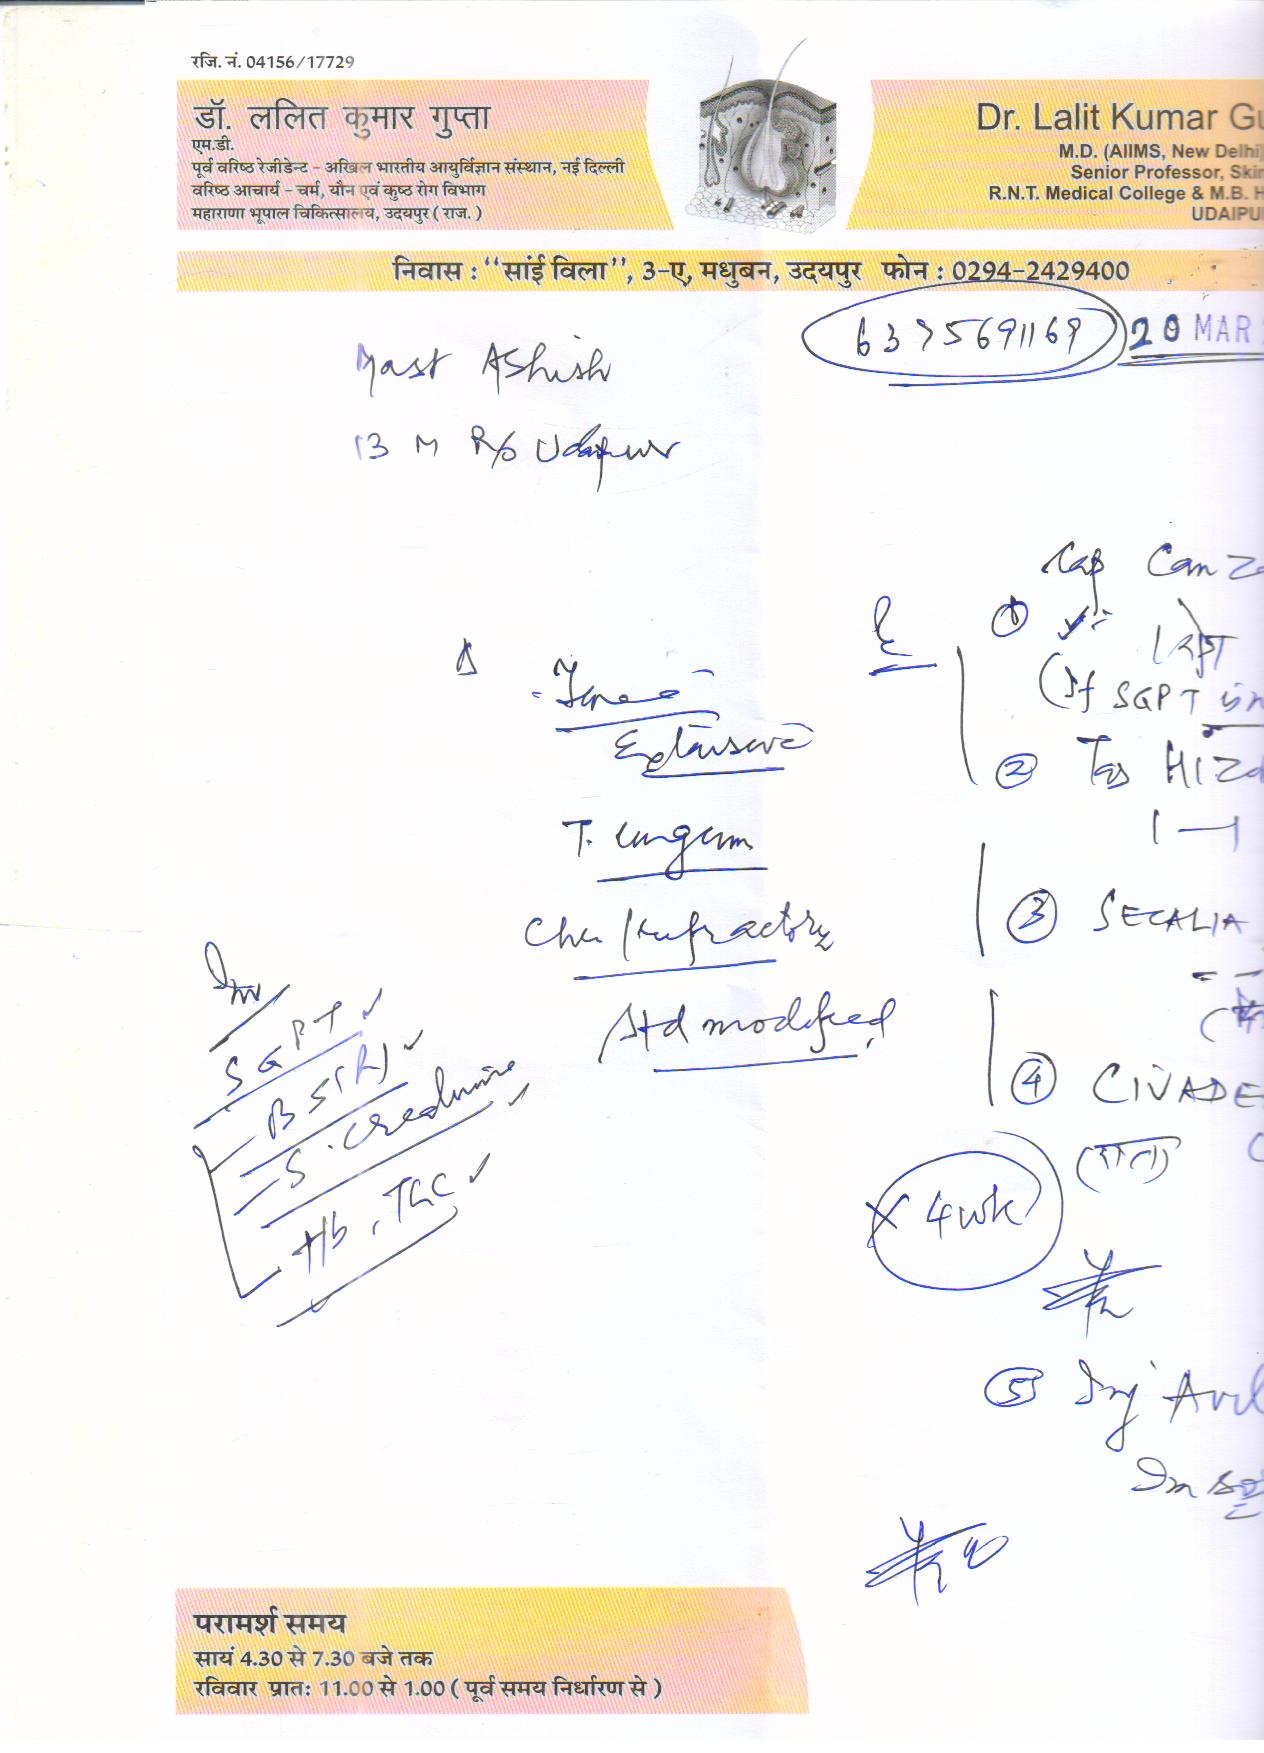 रजि. नं. 04156/17729
डॉ. ललित कुमार गुप्ता
एम.डी.
पूर्व वरिष्ठ रेजीडेन्ट - अखिल भारतीय आयुर्विज्ञान संस्थान, नई दिल्ली
वरिष्ठ आचार्य - चर्म, यौन एवं कुष्ठ रोग विभाग
महाराणा भूपाल चिकित्सालय, उदयपुर ( राज. )
Dr. Lalit Kumar Gu
M.D. (AIIMS, New Delhi)
Senior Professor, Skin
R.N.T. Medical College & M.B. H
UDAIPU
निवास : ‘‘सांई विला’’, 3-ए, मधुबन, उदयपुर फोन : 0294-2429400
6375691169
20 MAR
Mast Ashish
13 M R/o Udaipur
Extensive
T. unguium
Chr/refractory
Std modified
Inv
SGPT ✓
BS(R) ✓
S. Creatinine ✓
Hb, TLC ✓
① Cap Canz
(If SGPT is n
② Tab HIZ
1 — 1
③ SECALIA
④ CIVADE
(रात)
X 4 wk
⑤ Inj Avil
Im
परामर्श समय
सायं 4.30 से 7.30 बजे तक
रविवार प्रातः 11.00 से 1.00 ( पूर्व समय निर्धारण से )